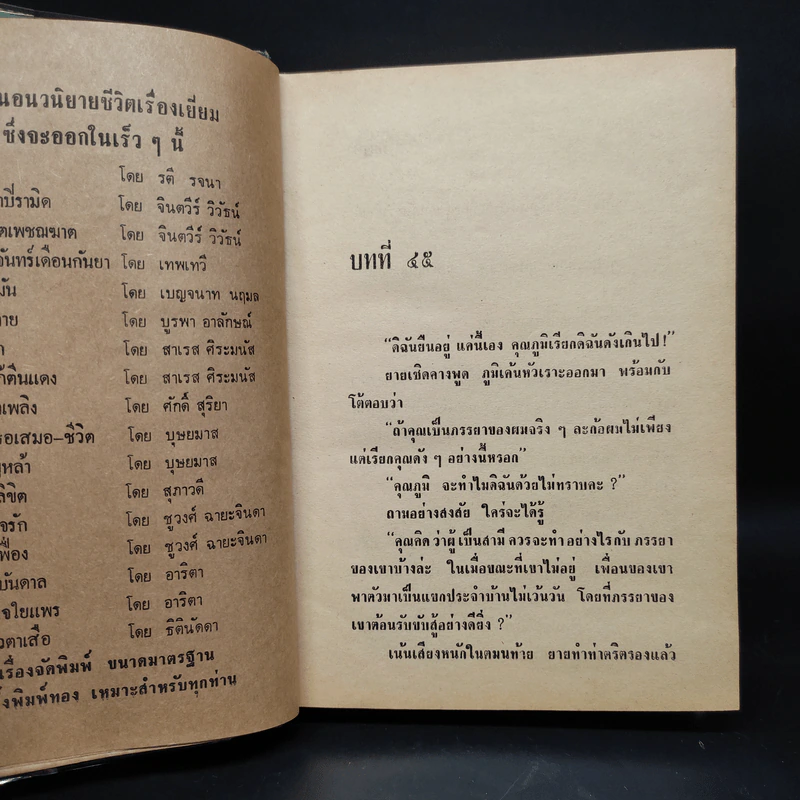 นอนวนิยายชีวิตเรื่องเยี่ยม
ซึ่งจะออกในเร็ว ๆ นี้
โดย รตี รจนา
าปิรามิด โดย จินตวีร์ วิวัธน์
ตเพชฌฆาต โดย จินตวีร์ วิวัธน์
จันทร์เดือนกันยา โดย เทพเทวี
มัน โดย เบญจนาท นฤมล
าย โดย บูรพา อาลักษณ์
โดย สาเรส ศิระมนัส
ก้ตีนแดง โดย สาเรส ศิระมนัส
เพลิง โดย ศักดิ์ สุริยา
รอเสมอ-ชีวิต โดย บุษยมาส
หล้า โดย บุษยมาส
ลิขิต โดย สุภาวดี
จรัก โดย ชูวงศ์ ฉายะจินดา
เฟื่อง โดย ชูวงศ์ ฉายะจินดา
บันดาล โดย อาริตา
จใยแพร โดย อาริตา
วตาเสือ โดย ธิตินัดดา
เรื่องจัดพิมพ์ ขนาดมาตรฐาน
งพิมพ์ทอง เหมาะสำหรับทุกท่าน
บทที่ ๔๕
“ดิฉันยืนอยู่ แค่นี้เอง คุณภูมิเรียกดิฉันดังเกินไป!”
ยายเชิดคางพูด ภูมิเค้นหัวเราะออกมา พร้อมกับ
โต้ตอบว่า
“ถ้าคุณเป็นภรรยาของผมจริง ๆ ละก้อผมไม่เพียง
แต่เรียกคุณดัง ๆ อย่างนี้หรอก”
“คุณภูมิ จะทำไมดิฉันด้วยไม่ทราบคะ ?”
ถามอย่างสงสัย ใคร่จะได้รู้
“คุณคิดว่าผู้เป็นสามี ควรจะทำอย่างไรกับ ภรรยา
ของเขาบ้างล่ะ ในเมื่อขณะที่เขาไม่อยู่ เพื่อนของเขา
พาตัวมาเป็นแขกประจำบ้านไม่เว้นวัน โดยที่ภรรยาของ
เขาต้อนรับขับสู้อย่างดียิ่ง ?”
เน้นเสียงหนักในตมนท้าย ยายทำท่าตริตรองแล้ว